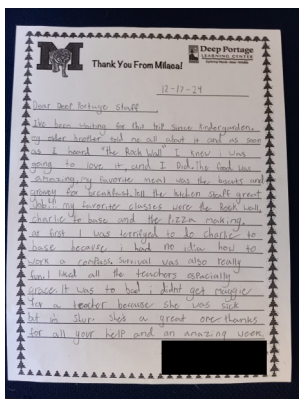 M
Thank You From Milaca!
Deep Portage
LEARNING CENTER
12-17-24
Dear Deep Portage Staff
Ive been waiting for this trip since Kindergarden,
my older brother told me all about it and as soon
as I heard "the Rock Wall" I knew i was
going to love it, and I did. The food was
amazing, my favorite meal was the biscuts and
gravey for breakfast, tell the kitchen staff great
job... my favorite classes were the Rock wall,
charlie to base and the Pizza making,
at first i was terrifyed to do charlie to
base because i had no idia how to
work a compass. Survival was also really
fun. I liked all the teachors espacially
grace. It was to bad i didnt get maggie
for a teachor because she was sick
but im shur she's a great one. thanks
for all your help and an amazing week.